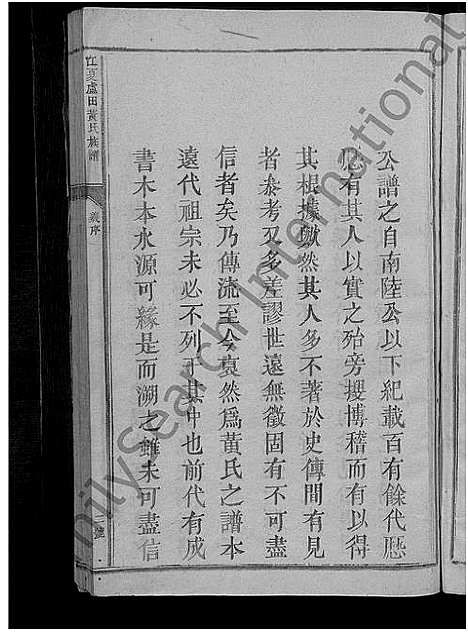 公譜之自南陸公以下紀載百有餘代懸
必有其人以實之殆旁搜博稽而有以得
其根據歟然其人多不著於史傳間有見
者叅考又多差謬世遠無徵固有不可盡
信者矣乃傳流至今裒然為黃氏之譜本
遠代祖宗未必不列于其中也前代有成
書木本水源可緣是而溯之雖未可盡信
江夏盧田黃氏族譜
義序
號
FamilySearch International